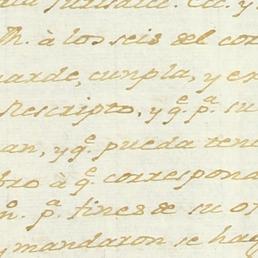 Th. à los seis del cor
uarde, cumpla, y ex
Rescripto, y q.e p.a su
an, y q.e pueda tene
bro à q.e corresponda
p.a fines de su of
y mandaron se hag